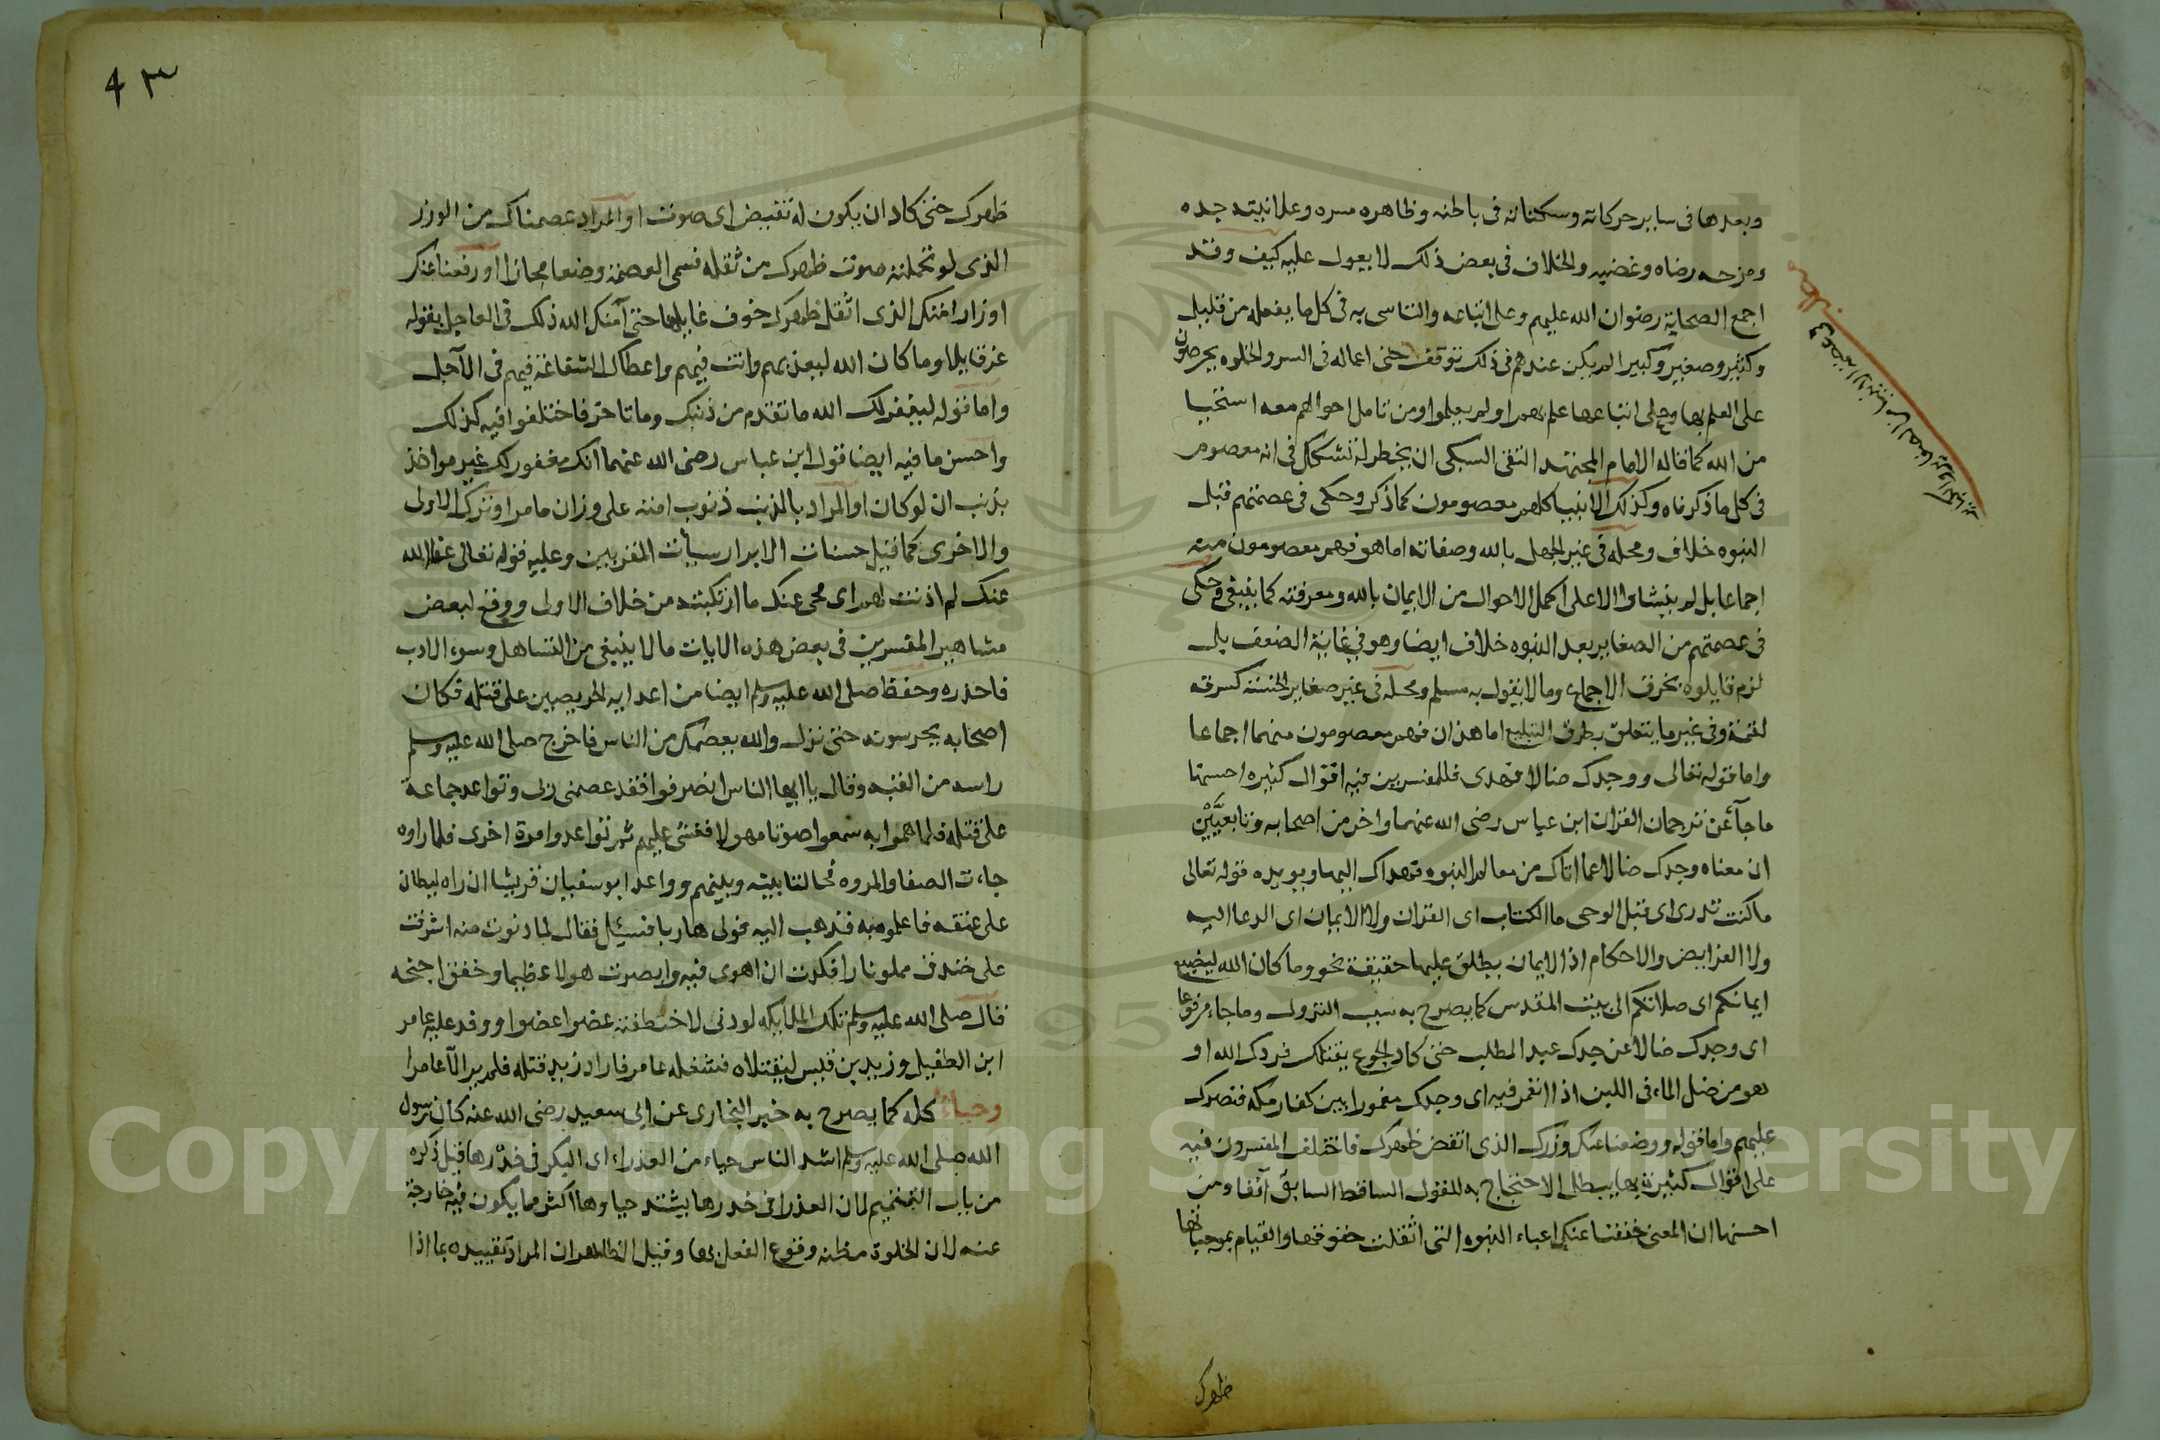 وبعدها فى ساير حركاته وسكناته فى باطنه وظاهره سره وعلانيته جده
ومزحه رضاه وغضبه والخلاف فى بعض ذلك لا يعول عليه كيف وقد
اجمع الصحابة رضوان الله عليهم وعلى اتباعه والتاسى به فى كل ما يفعله من قليل
وكثير وصغير وكبير لم يكن عندهم فى ذلك توقف حتى اعماله فى السر والخلوه يحرصون
على العلم بها وعلى اتباعها علم بهم او لم يعلموا ومن تامل احوالهم معه استحيا
من الله كما قاله الامام المجتهد التقى السبكى ان يخطر له تشكك فى انه معصوم
فى كل ما ذكرناه وكذلك الانبيا كلهم معصومون كما ذكر وحكى فى عصمتهم قبل
النبوه خلاف ومحله فى غير الجهل بالله وصفاته اما هو فهم معصومون منه
اجماعا بل لم ينشاوا الا على اكمل الاحوال من الايمان بالله ومعرفته كما ينبغى وحكى
فى عصمتهم من الصغاير بعد النبوه خلاف ايضا وهو فى غاية الضعف بل
لزم قايلوه بخرق الاجماع وما لا يقول به مسلم ومحله فى غير صغاير الخسة كسرقة
لقمة وفى غير ما يتعلق بطرق التبليغ اما هذان فهم معصومون منهما اجماعا
واما قوله تعالى ووجدك ضالا فهدى فللمفسرين فيه اقوال كثيره احسنها
ما جآ عن ترجمان القران ابن عباس رضى الله عنهما واخر من اصحابه وتابعيَّين
ان معناه وجدك ضالا عما اتاك من معالم النبوه فهداك اليها ويويده قوله تعالى
ما كنت تدرى اى قبل الوحى ما الكتاب اى القران ولا الايمان اى الدعا اليه
ولا الفرايض والاحكام اذ الايمان يطلق عليها حقيقة نحو وما كان الله ليضيع
ايمانكم اى صلاتكم الى بيت المقدس كما يصرح به سبب النزول وما جاء مرفوعا
اى وجدك ضالا عن جدك عبد المطلب حتى كاد الجوع يقتلك فردك الله او
هو من ضل الماء فى اللبن اذا انغمر فيه اى وجدك مغمورا بين كفار مكه فنصرك
عليهم واما قوله ووضعنا عنك وزرك الذى انقض ظهرك فاختلف المفسرون فيه
على اقوال كثيرة بها يبطل الاحتجاج به للقول الساقط السابق آنفا ومن
احسنها ان المعنى خففنا عنك اعباء النبوه التى اثقلت حقوقها والقيام بموجباتها
ظهرك
ظهرك حتى كاد ان يكون له نقيض اى صوت او المراد عصمناك من الوزر
الذى لو تحملته صوت ظهرك من ثقله فسمى العصمة وضعا مجازا او رفعنا عنك
اوزار امتك الذى اثقل ظهرك خوف غايلها حتى آمنك الله ذلك فى العاجل بقوله
عز قايلا وما كان الله ليعذبهم وانت فيهم واعطاك الشفاعة فيهم فى الآجل
واما قوله ليغفر لك الله ما تقدم من ذنبك وما تاخر فاختلفوا فيه كذلك
واحسن ما فيه ايضا قول ابن عباس رضى الله عنهما انك مغفور لك غير مواخذ
بذنب ان لو كان او المراد بالذنب ذنوب امته على وزان ما مر او ترك الاولى
والاخرى كما قيل حسنات الابرار سيأت المقربين وعليه قوله تعالى عفا الله
عنك لم اذنت لهم اى محى عنك ما ارتكبته من خلاف الاولى ووقع لبعض
مشاهير المفسرين فى بعض هذه الايات ما لا ينبغى من التساهل وسوء الادب
فاحذره وحفظ صلى الله عليه وسلم ايضا من اعدايه الحريصين على قتله فكان
اصحابه يحرسونه حتى نزل والله يعصمك من الناس فاخرج صلى الله عليه وسلم
راسه من القبه وقال يا ايها الناس انصرفوا فقد عصمنى ربى وتواعد جماعة
على قتله فلما هموا به سمعوا صوتا مهولا فغشى عليهم ثم تواعدوا مرة اخرى فلما راوه
جاءت الصفا والمروه فحالتا بينه وبينهم وواعد ابو سفيان قريشا ان راه ليطان
على عنقه فاعلموه به فذهب اليه فولى هاربا فسيل فقال لما دنوت منه اشرفت
على خندق مملو نارا فكدت ان اهوى فيه وابصرت هولا عظيما وخفق اجنحه
فقال صلى الله عليه وسلم تلك الملايكه لو دنى لاختطفته عضوا عضوا ووفد عليه عامر
ابن الطفيل وزيد بن قيس ليقتلاه فشغله عامر فاراد زيد قتله فلم ير الآ عامرا
وحياءه كله كما يصرح به خبر البخارى عن ابى سعيد رضى الله عنه كان رسول
الله صلى الله عليه وسلم اشد الناس حياء من العذراء اى البكر فى خدرها قيل ذكره
من باب التتميم لان العذرا فى خدرها يشتد حياوها اكثر مما يكون فيه خارجة
عنه لان الخلوة مظنه وقوع الفعل بها وقيل الظاهر ان المراد تقييده بما اذا